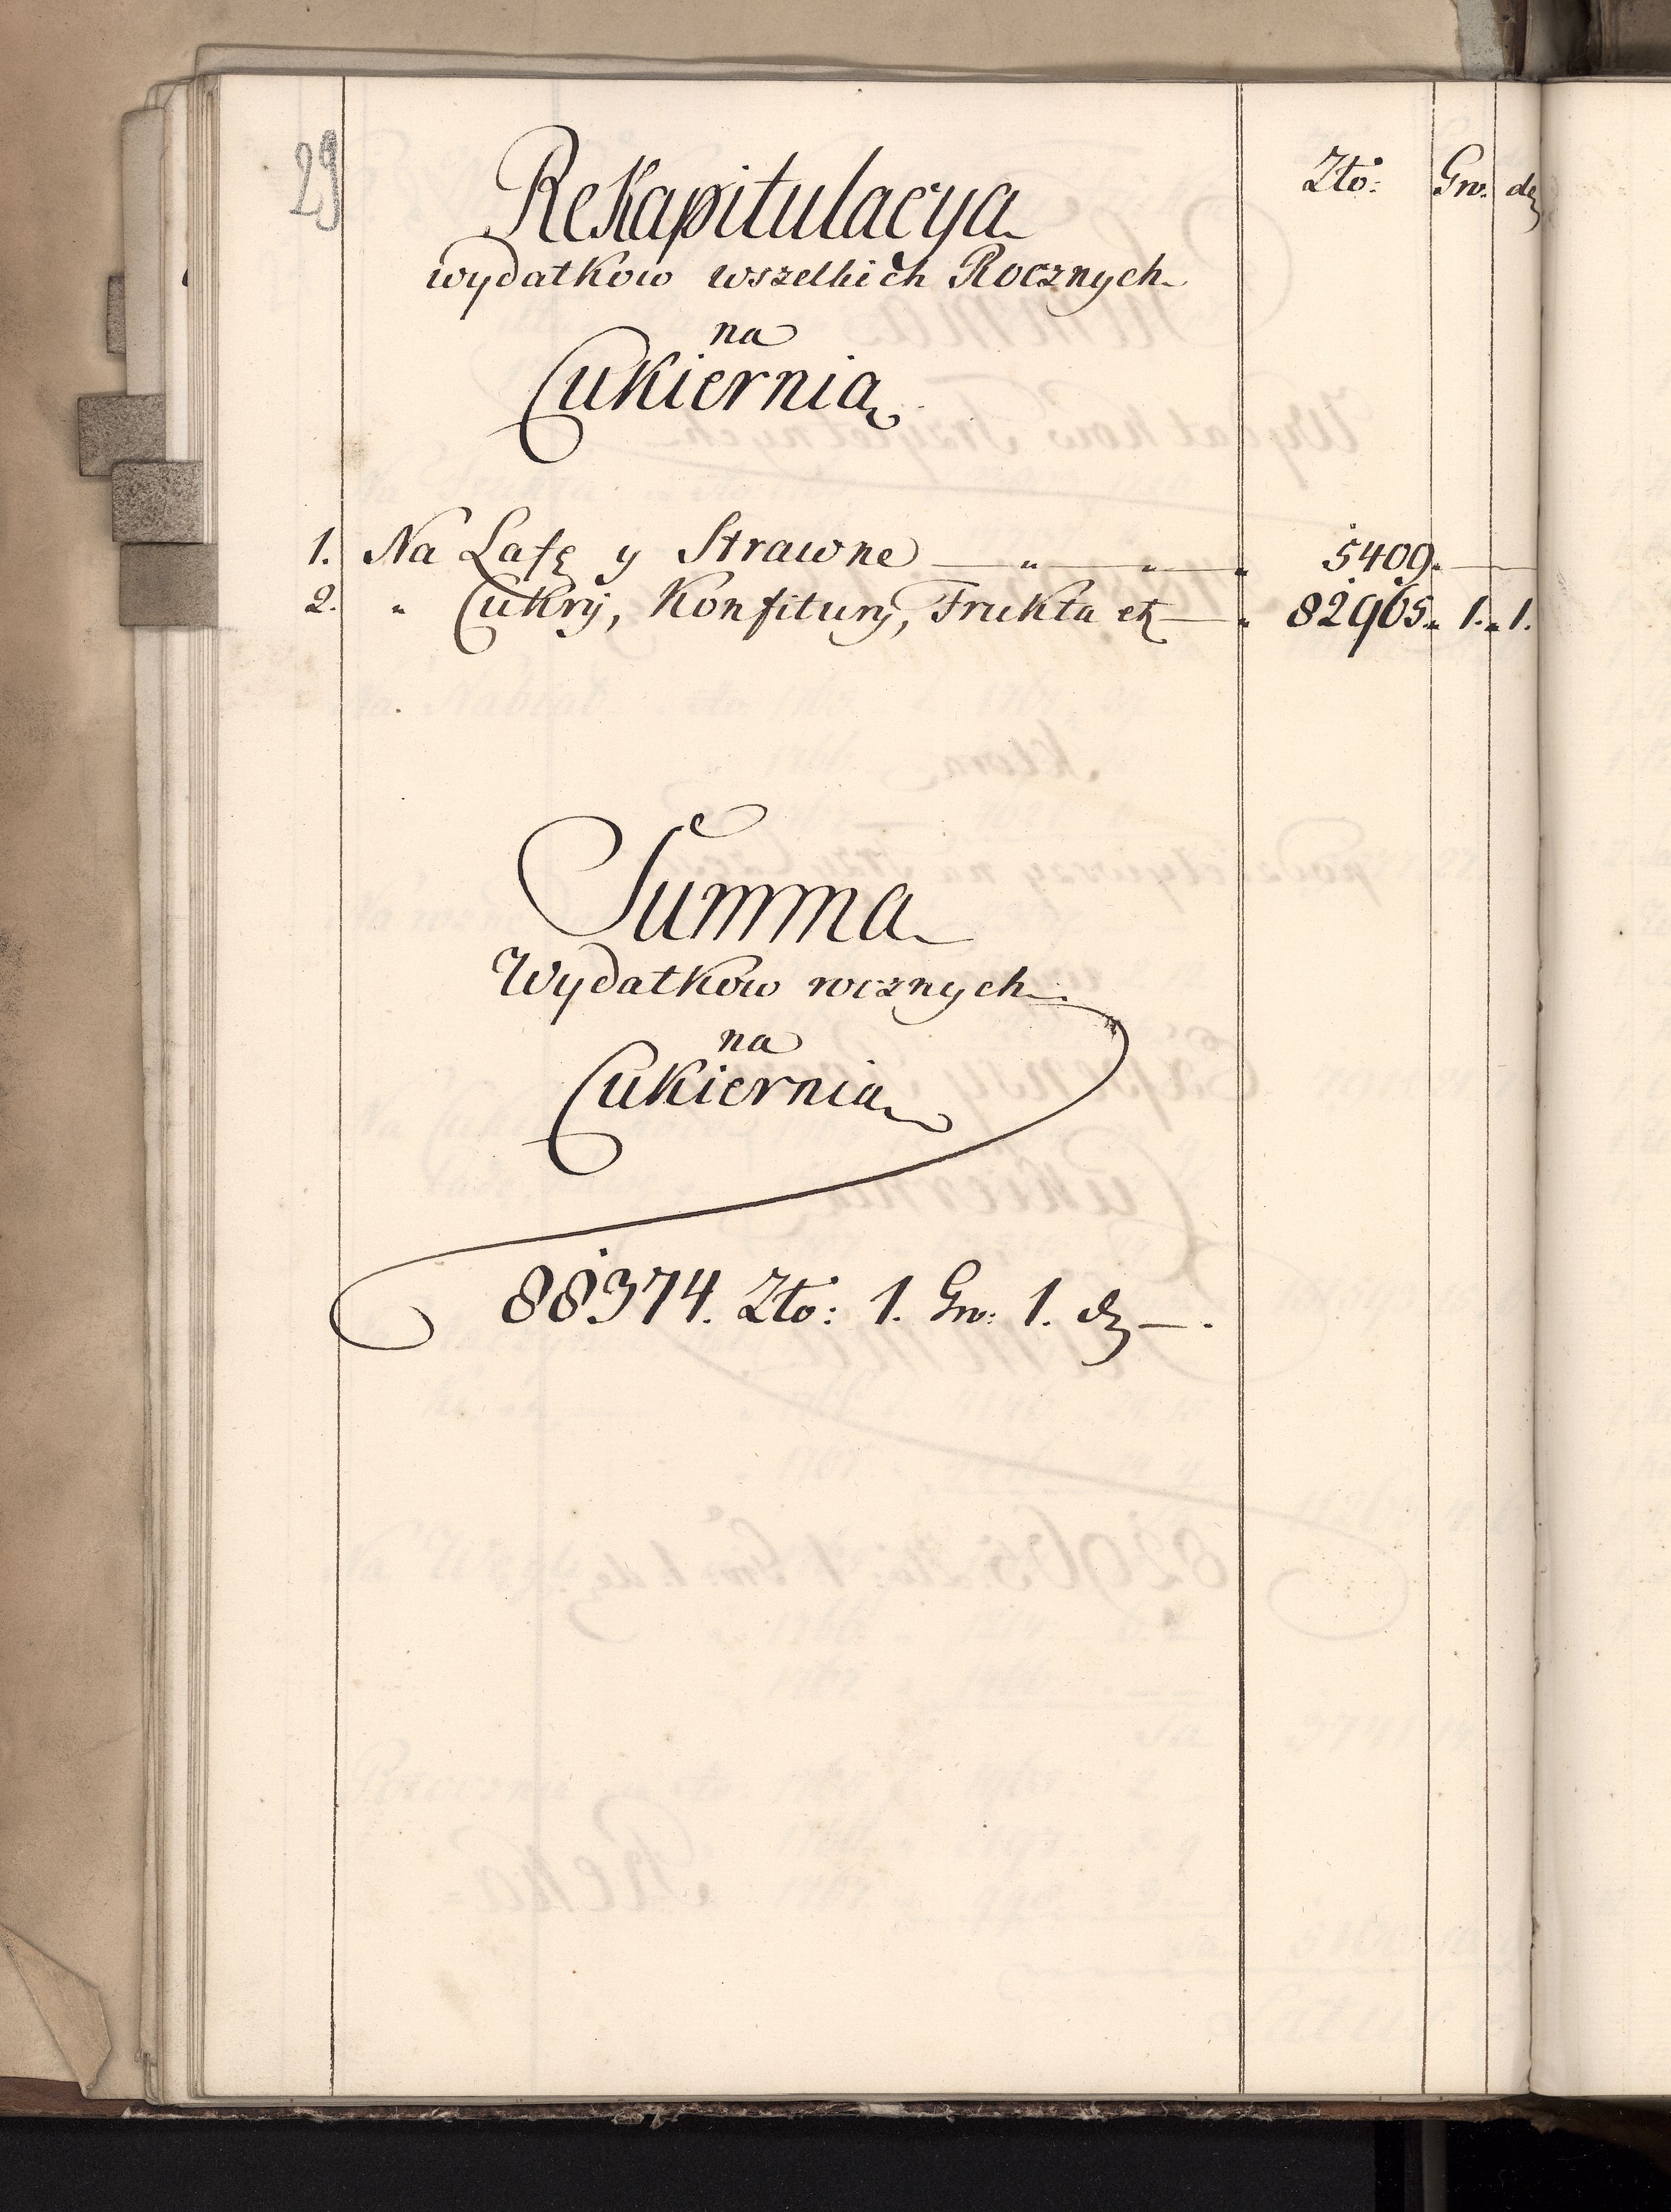 29
Złо: Gr: dę
Rekapitulacya
wydatkow wszelkich Rocznych
na
Cukiernią
1. Na Lafę y Strawne — " — " — " 5409. —
2. " Cukry, Konfitury, Frukta etz — " 82965 " 1. " 1.
Summa
Wydatkow rocznych
na
Cukiernią
88374. Zło: 1. Gr: 1. dę — .